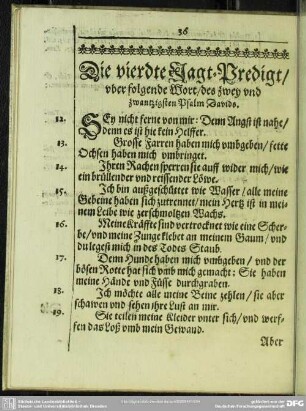 36
Die vierdte Jagt-Predigt/
vber folgende Wort/des zwey vnd
zwantzigsten Psalm Davids.
12. SEy nicht ferne von mir: Denn Angst ist nahe/
denn es ist hie kein Helffer.
13. Grosse Farren haben mich vmbgeben/fette
Ochsen haben mich vmbringet.
14. Ihren Rachen sperren sie auff wider mich/wie
ein brüllender vnd reissender Löwe.
15. Ich bin außgeschüttet wie Wasser/alle meine
Gebeine haben sich zutrennet/mein Hertz ist in mei-
nem Leibe wie zerschmoltzen Wachs.
16. Meine Kräffte sind vertrocknet wie eine Scher-
be/vnd meine Zunge klebet an meinem Gaum/vnd
du legest mich in des Todes Staub.
17. Denn Hunde haben mich vmbgeben/vnd der
bösen Rotte hat sich vmb mich gemacht: Sie haben
meine Hände vnd Füsse durchgraben.
18. Ich möchte alle meine Beine zehlen/sie aber
schawen vnd sehen ihre Lust an mir.
19. Sie teilen meine Kleider vnter sich/vnd werf-
fen das Loß vmb mein Gewand.
Aber